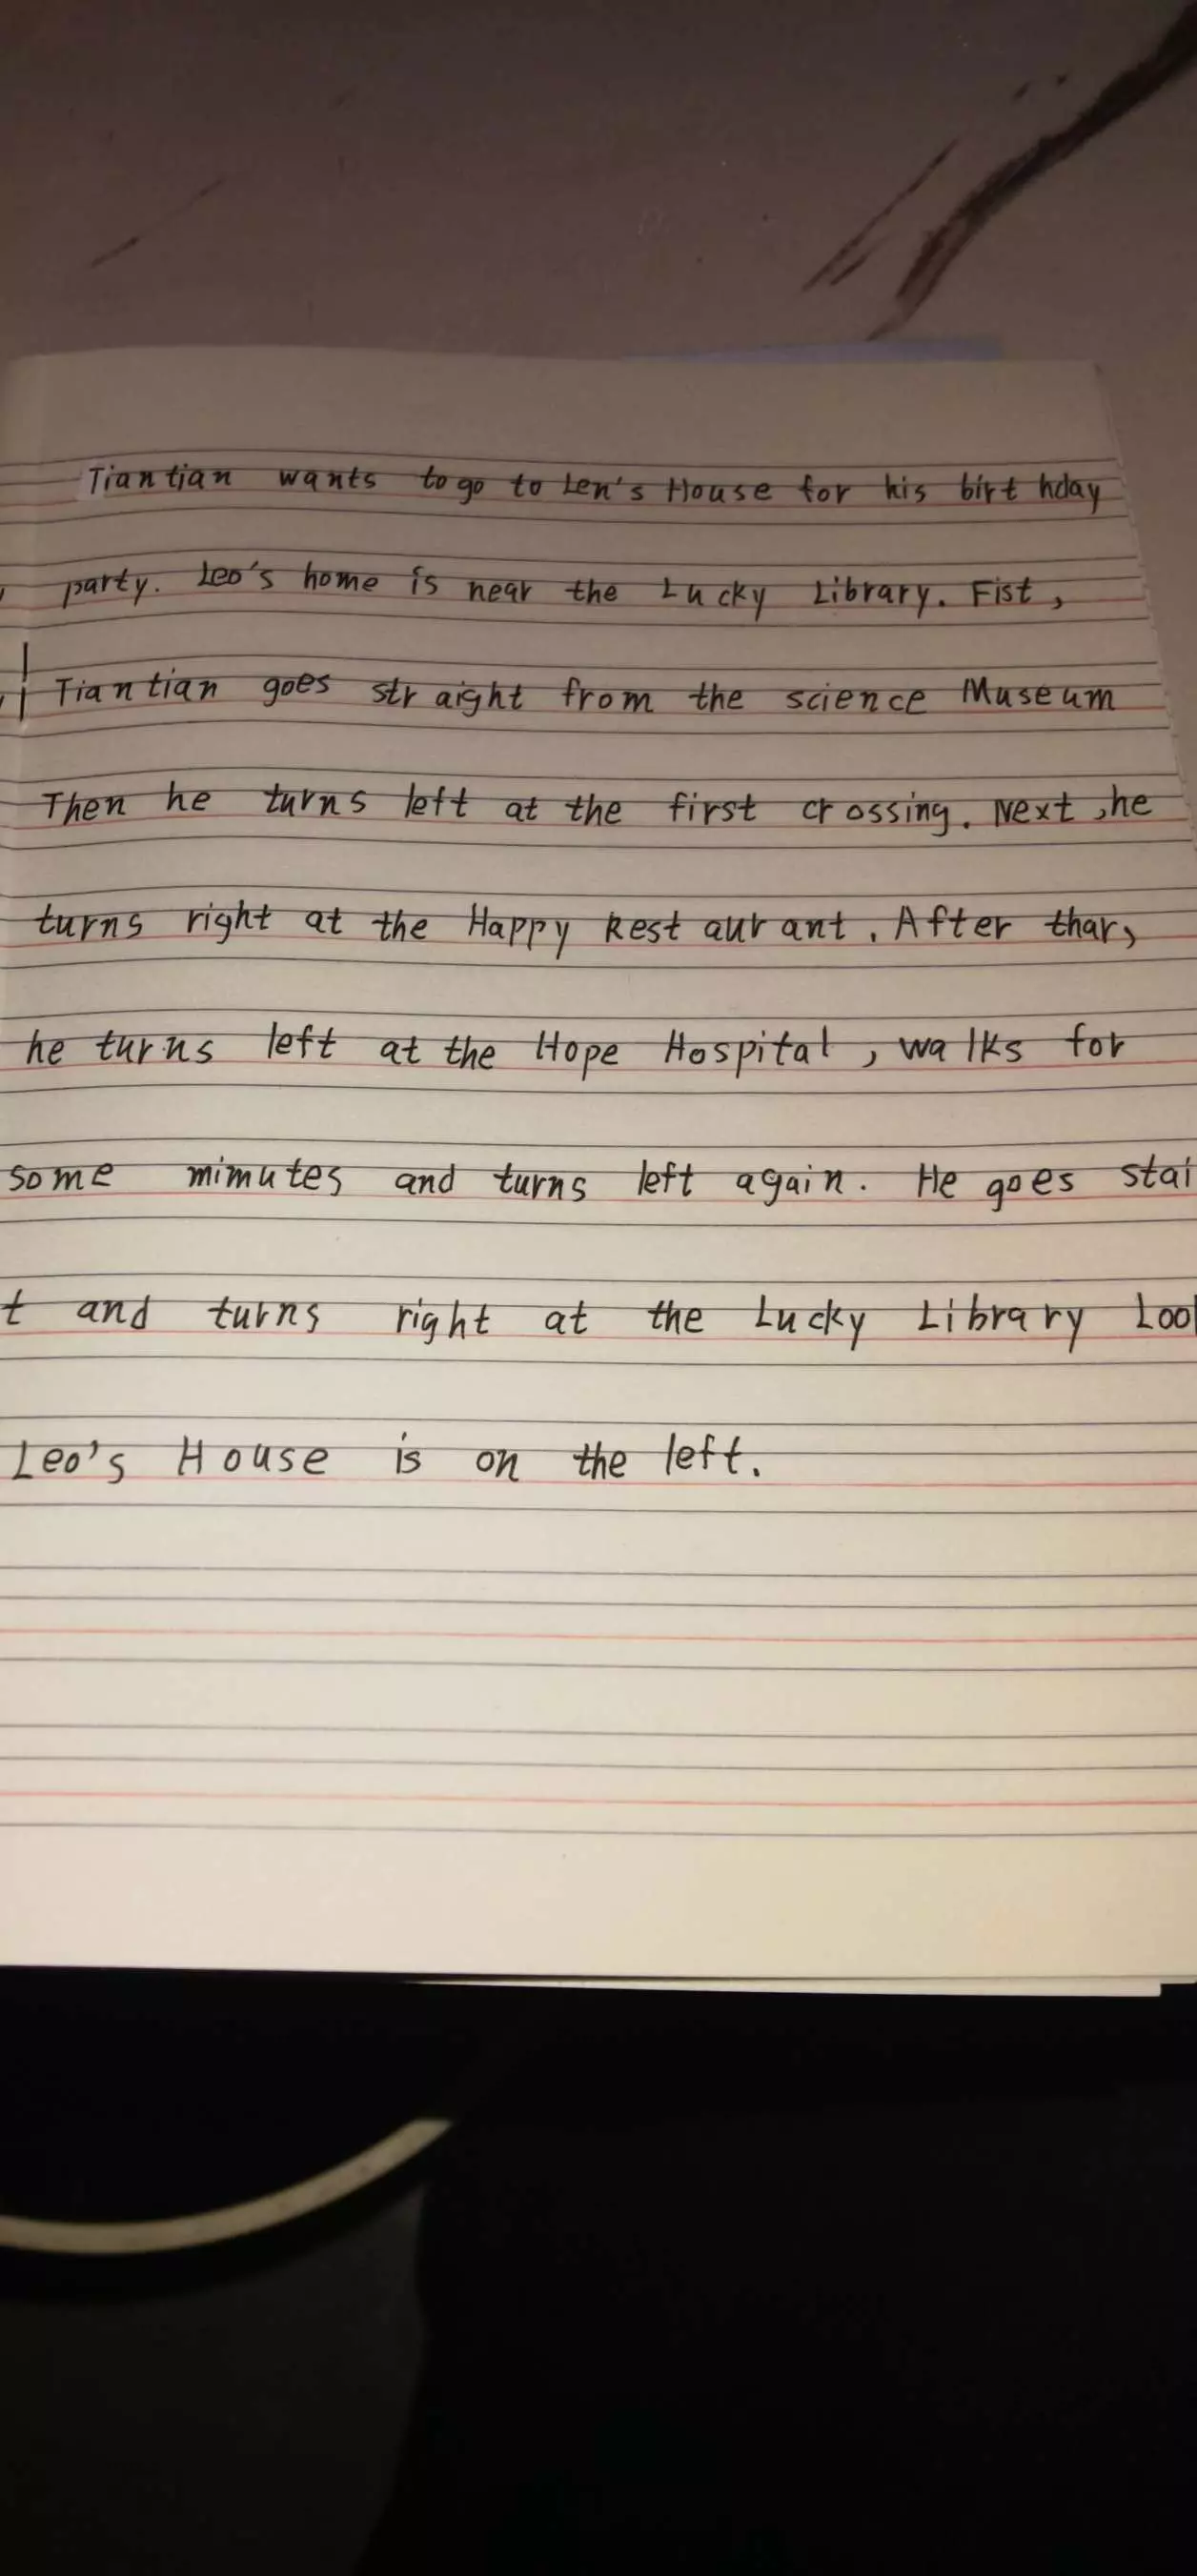 Tiantian wants to go to Len's House for his birthday
party. Leo's home is near the Lucky Library. Fist,
Tiantian goes straight from the science Museum
Then he turns left at the first crossing. Next, he
turns right at the Happy Restaurant. After thar,
he turns left at the Hope Hospital, walks for
some mimutes and turns left again. He goes stai
t and turns right at the Lucky Library Loo
Leo's House is on the left.